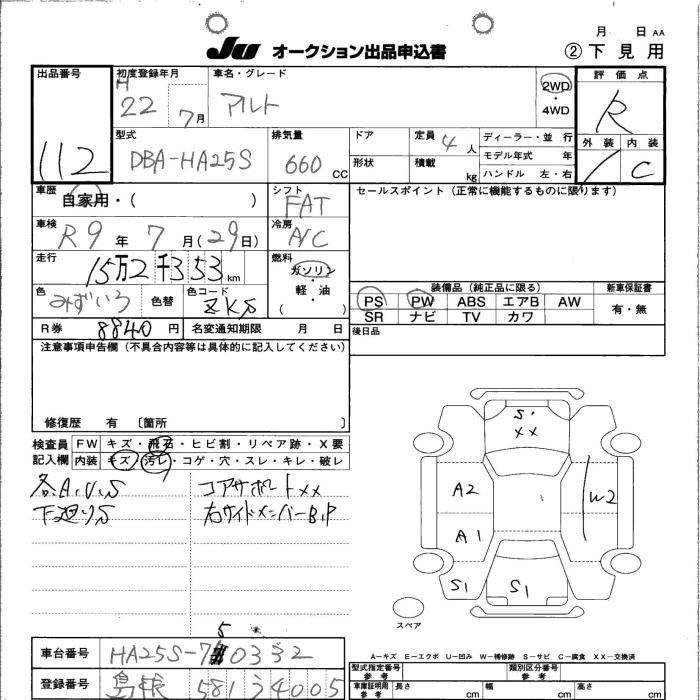 JU オークション出品申込書
月 日 AA
② 下見用
出品番号
112
初度登録年月
H
22 7月
車名・グレード
アルト
2WD
・
4WD
評価点
R
型式
DBA-HA25S
排気量
660 CC
ドア
形状
定員 4人
積載 kg
ディーラー・並行
モデル年式 年
ハンドル 左・右
外装 内装
C
車歴
自家用・( )
シフト
FAT
セールスポイント (正常に機能するものに限ります)
車検
R9年 7月(29日)
冷房
A/C
走行
15万2千353 km
燃料
ガソリン
・
軽・油
( )
色
みずいろ
色替
色コード
ZKS
装備品 (純正品に限る)
新車保証書
PS PW ABS エアB AW
SR ナビ TV カワ
有・無
R券 8840円
名変通知期限 月 日
後日品
注意事項申告欄 (不具合内容等は具体的に記入してください)
修復歴 有 〔箇所 〕
検査員
記入欄
FW キズ・飛石・ヒビ割・リペア跡・X要
内装 キズ・汚レ・コゲ・穴・スレ・キレ・破レ
各A.U.S
下廻りS
コアサポートXX
右サイドメンバーB,P
S・
XX
A2
W2
A1
S1
S1
スペア
A-キズ E-エクボ U-凹み W-補修跡 S-サビ C-腐食 XX-交換済
車台番号
5
登録番号
島根 581 34005
型式指定番号
参考
類別区分番号
参考
車庫証明用
参考
長さ cm
幅 cm
高さ cm